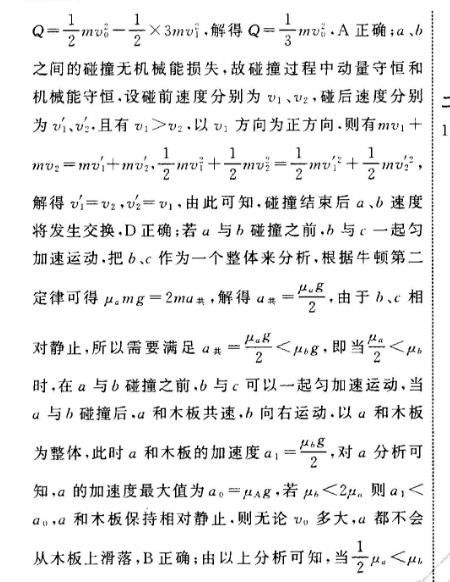 Q=\frac{1}{2}mv_0^2-\frac{1}{2}×3mv_1^2,解得 Q=\frac{1}{3}mv_0^2.A 正确;a、b
之间的碰撞无机械能损失,故碰撞过程中动量守恒和
机械能守恒.设碰前速度分别为 v_1、v_2,碰后速度分别
为 v_1'、v_2'.且有 v_1>v_2.以 v_1 方向为正方向.则有mv_1+
mv_2=mv_1'+mv_2',\frac{1}{2}mv_1^2+\frac{1}{2}mv_2^2=\frac{1}{2}mv_1'^2+\frac{1}{2}mv_2'^2,
解得 v_1'=v_2,v_2'=v_1,由此可知.碰撞结束后 a、b 速度
将发生交换.D 正确;若 a 与 b 碰撞之前,b 与 c 一起匀
加速运动,把 b、c 作为一个整体来分析,根据牛顿第二
定律可得 μ_a mg=2ma_共,解得 a_共=\frac{μ_a g}{2},由于 b、c 相
对静止,所以需要满足 a_共=\frac{μ_a g}{2}<μ_b g,即当\frac{μ_a}{2}<μ_b
时,在 a 与 b 碰撞之前,b 与 c 可以一起匀加速运动,当
a 与 b 碰撞后,a 和木板共速,b 向右运动.以 a 和木板
为整体,此时 a 和木板的加速度 a_1=\frac{μ_b g}{2},对 a 分析可
知,a 的加速度最大值为 a_0=μ_A g,若 μ_b<2μ_a 则 a_1<
a_0,a 和木板保持相对静止.则无论 v_0 多大,a 都不会
从木板上滑落,B 正确;由以上分析可知,当\frac{1}{2}μ_a<μ_b
二
1